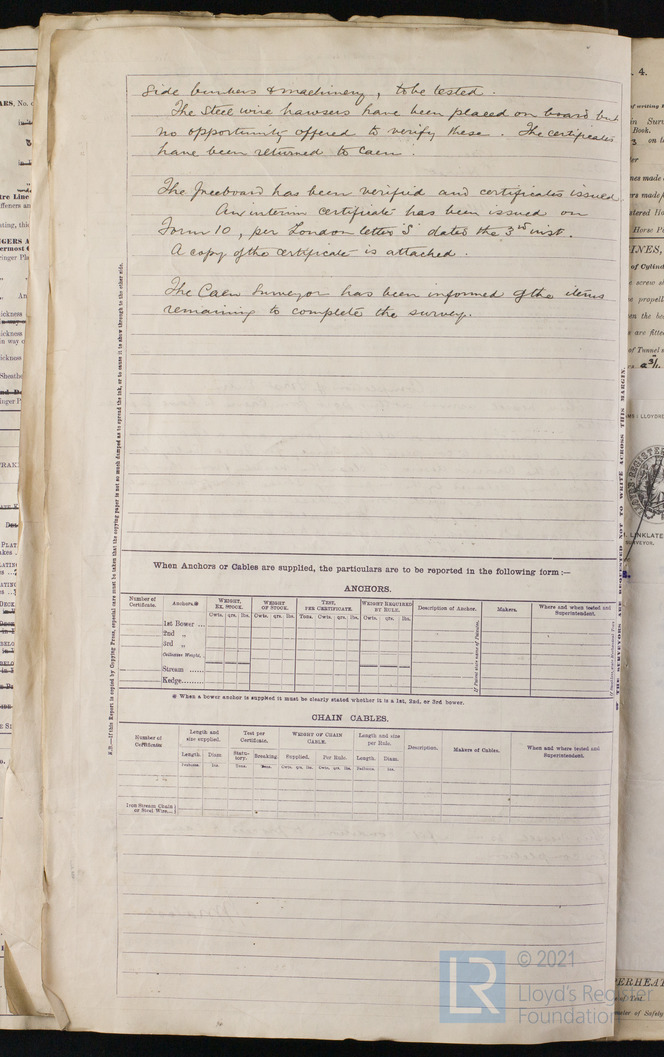 Side bunkers & machinery, to be tested.
The Steel wire hawsers have been placed on board but
no opportunity offered to verify these. The certificates
have been returned to Caen.
The Freeboard has been verified and certificates issued
An interim certificate has been issued on
Form 10, per London letter "S" dated the 3rd inst.
A copy of the certificate is attached.
The Caen Surveyor has been informed of the items
remaining to complete the survey.
When Anchors or Cables are supplied, the particulars are to be reported in the following form:—
ANCHORS.
Number of Certificate. Anchors.* WEIGHT, EX. STOCK. WEIGHT OF STOCK. TEST, PER CERTIFICATE. WEIGHT REQUIRED BY RULE. Description of Anchor. Makers. Where and when tested and Superintendent.
Cwts. qrs. lbs. Cwts. qrs. lbs. Tons. Cwts. qrs. lbs. Cwts. qrs. lbs.
1st Bower ...
2nd „
3rd „
Collective Weight.
Stream ......
Kedge........
* When a bower anchor is supplied it must be clearly stated whether it is a 1st, 2nd, or 3rd bower.
CHAIN CABLES.
Number of Certificate Length and size supplied. Test per Certificate. WEIGHT OF CHAIN CABLE. Length and size per Rule. Description. Makers of Cables. When and where tested and Superintendent.
Length. Diam. Statutory. Breaking. Supplied. Per Rule. Length. Diam.
Fathoms. Ins. Tons. Tons. Cwts. qrs. lbs. Cwts. qrs. lbs. Fathoms. Ins.
Iron Stream Chain
or Steel Wire...
N.B.—If this Report is copied by Copying Press, especial care must be taken that the copying paper is not so much damped as to spread the ink, or to cause it to show through to the other side.
THE SURVEYORS ARE REQUESTED NOT TO WRITE ACROSS THIS MARGIN.
LR
© 2021
Lloyd's Register
Foundation